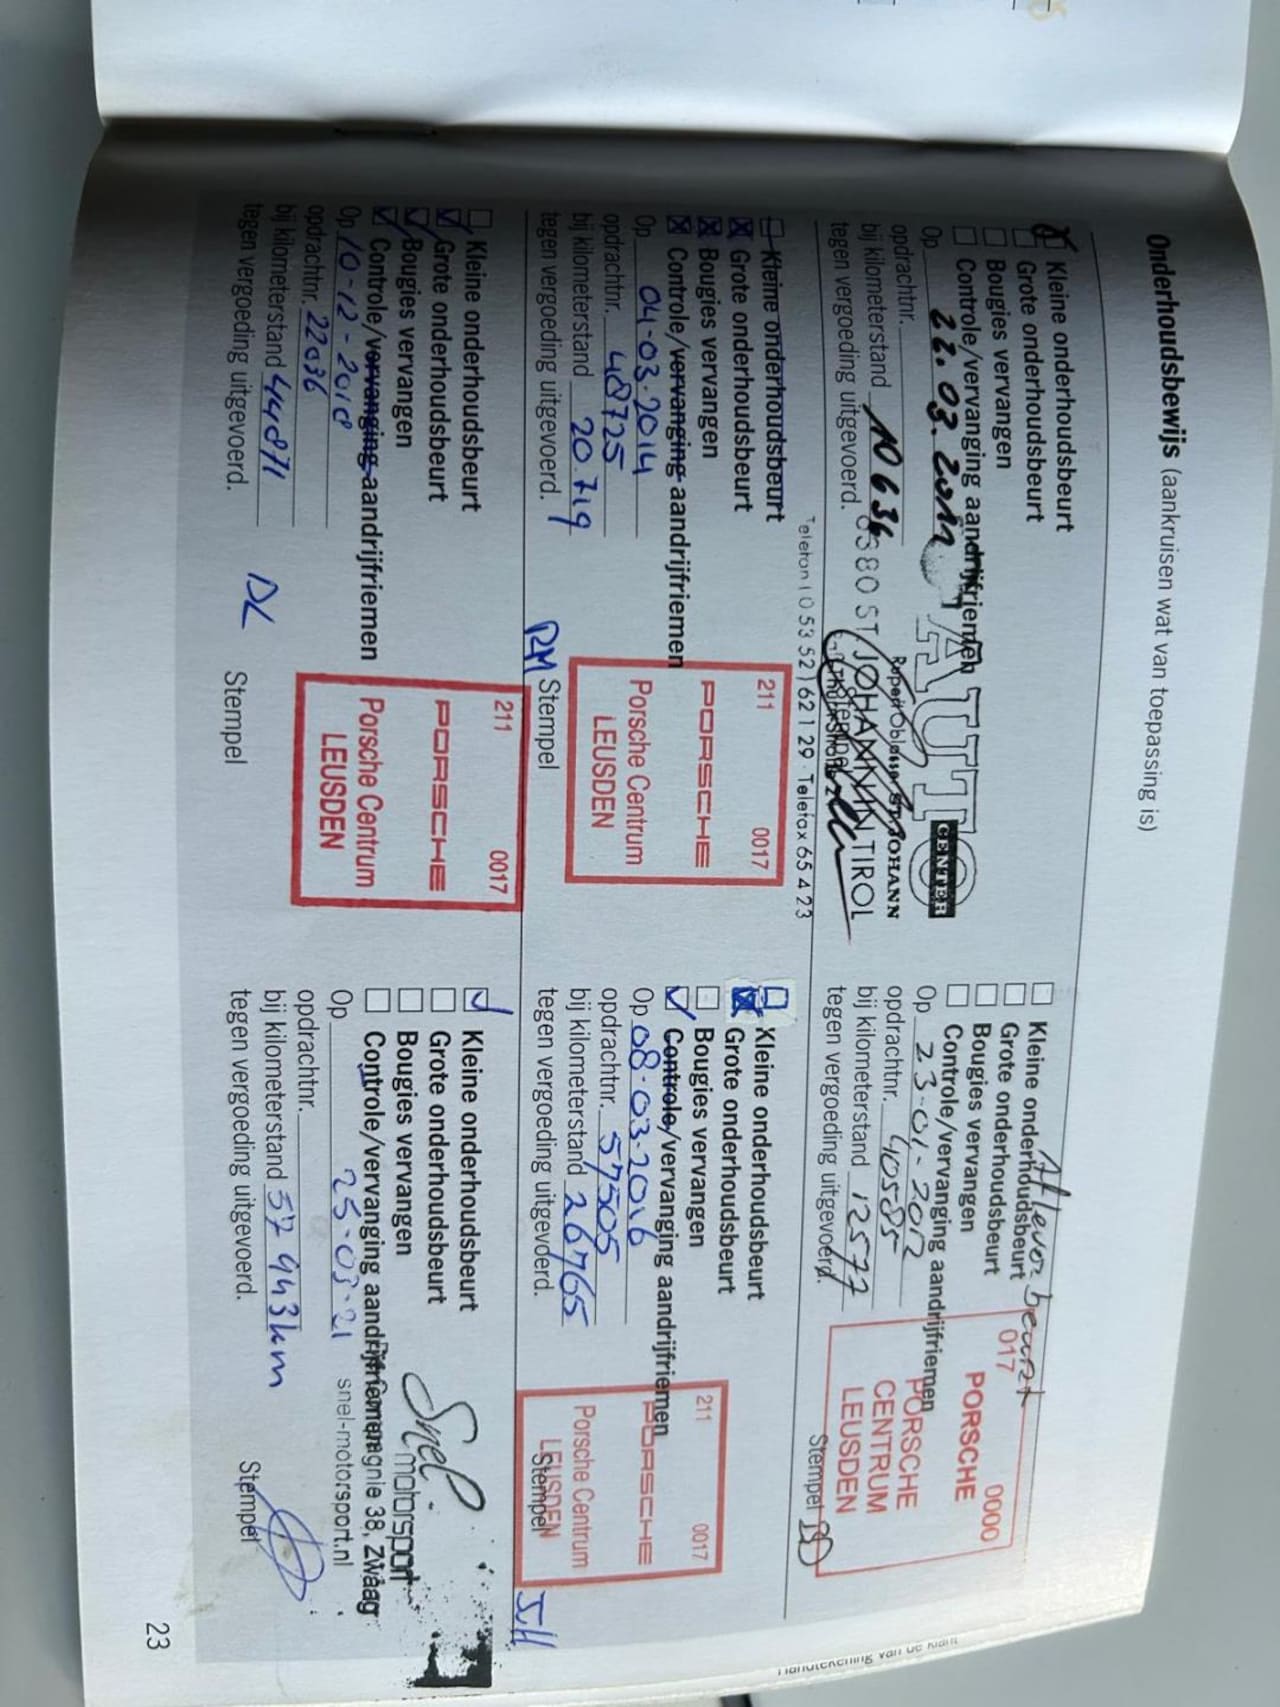 Onderhoudsbewijs (aankruisen wat van toepassing is)
Kleine onderhoudsbeurt
Grote onderhoudsbeurt
Bougies vervangen
Controle/vervanging aandrijfriemen
Op 22.03.2011
opdrachtnr.
bij kilometerstand 10634
tegen vergoeding uitgevoerd.
AUTO
CENTER
ST. JOHANN
6380 ST. JOHANN IN TIROL
Telefon (0 53 52) 62 1 29 Telefax 65 4 23
Afleverbeurt
Kleine onderhoudsbeurt
Grote onderhoudsbeurt
Bougies vervangen
Controle/vervanging aandrijfriemen
Op 23-01-2012
opdrachtnr. 40585
bij kilometerstand 12577
tegen vergoeding uitgevoerd.
017 0000
PORSCHE
PORSCHE
CENTRUM
LEUSDEN
Stempel
Kleine onderhoudsbeurt
Grote onderhoudsbeurt
Bougies vervangen
Controle/vervanging aandrijfriemen
Op 04-03-2014
opdrachtnr. 48725
bij kilometerstand 20.719
tegen vergoeding uitgevoerd.
211 0017
PORSCHE
Porsche Centrum
LEUSDEN
RM Stempel
Kleine onderhoudsbeurt
Grote onderhoudsbeurt
Bougies vervangen
Controle/vervanging aandrijfriemen
Op 08-03-2016
opdrachtnr. 57505
bij kilometerstand 26765
tegen vergoeding uitgevoerd.
211 0017
PORSCHE
Porsche Centrum
LEUSDEN
Stempel
JH
Kleine onderhoudsbeurt
Grote onderhoudsbeurt
Bougies vervangen
Controle/vervanging aandrijfriemen
Op 10-12-2018
opdrachtnr. 22036
bij kilometerstand 44871
tegen vergoeding uitgevoerd.
DL
211 0017
PORSCHE
Porsche Centrum
LEUSDEN
Stempel
Kleine onderhoudsbeurt
Grote onderhoudsbeurt
Bougies vervangen
Controle/vervanging aandrijfriemen
Op 25-03-21
opdrachtnr.
bij kilometerstand 57943km
tegen vergoeding uitgevoerd.
Snel
motorsport
38, Zwaag
snel-motorsport.nl
Stempel
Handtekening van de klant
23